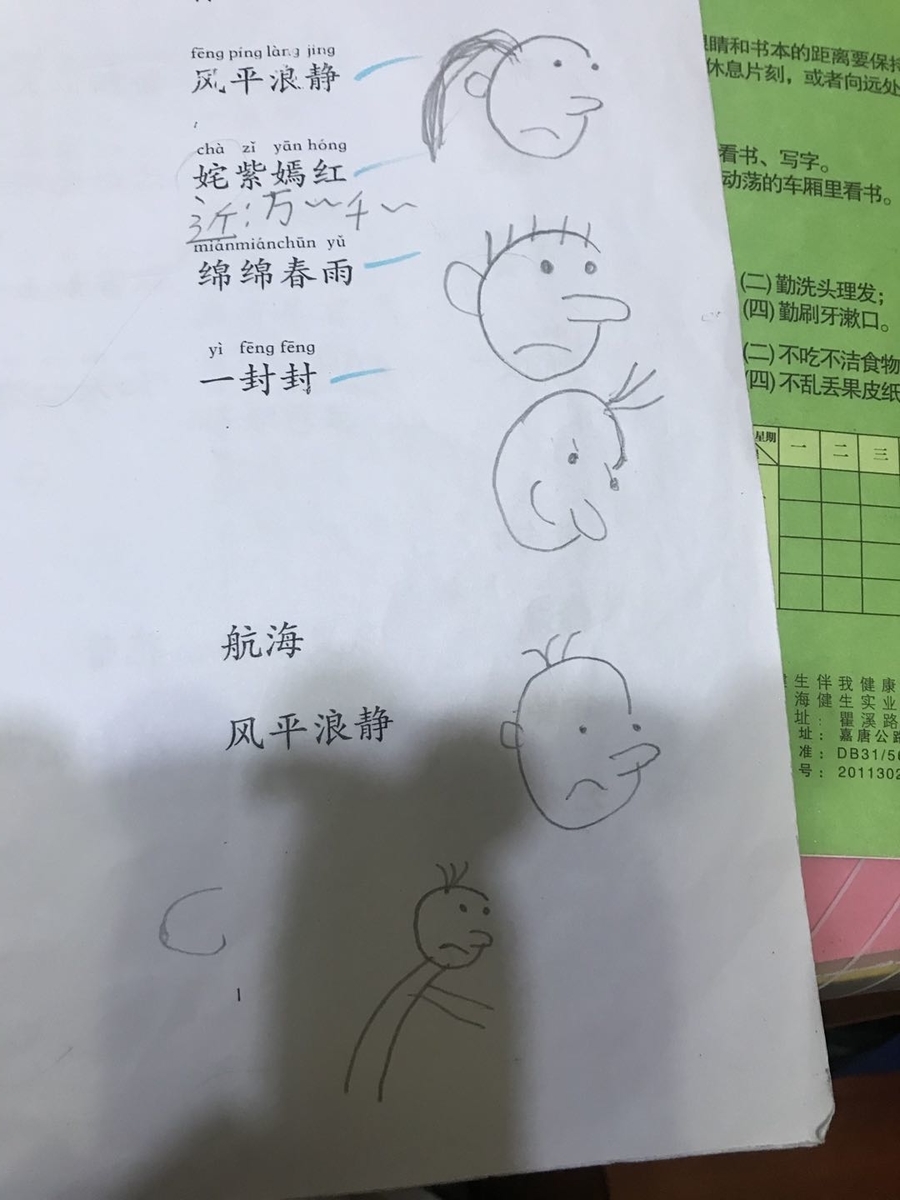 fēng píng làng jìng
风平浪静
chà zǐ yān hóng
姹紫嫣红
近:万~千~
miánmiánchūn yǔ
绵绵春雨
yì fēng fēng
一封封
航海
风平浪静
1
眼睛和书本的距离要保持
休息片刻，或者向远处
看书、写字。
动荡的车厢里看书。
(二)勤洗头理发；
(四)勤刷牙漱口。
(二)不吃不洁食物
(四)不乱丢果皮纸
星期 一 二 三
生伴我健康
海健生实业
址：瞿溪路
址：嘉唐公路
准：DB31/56
号：2011302